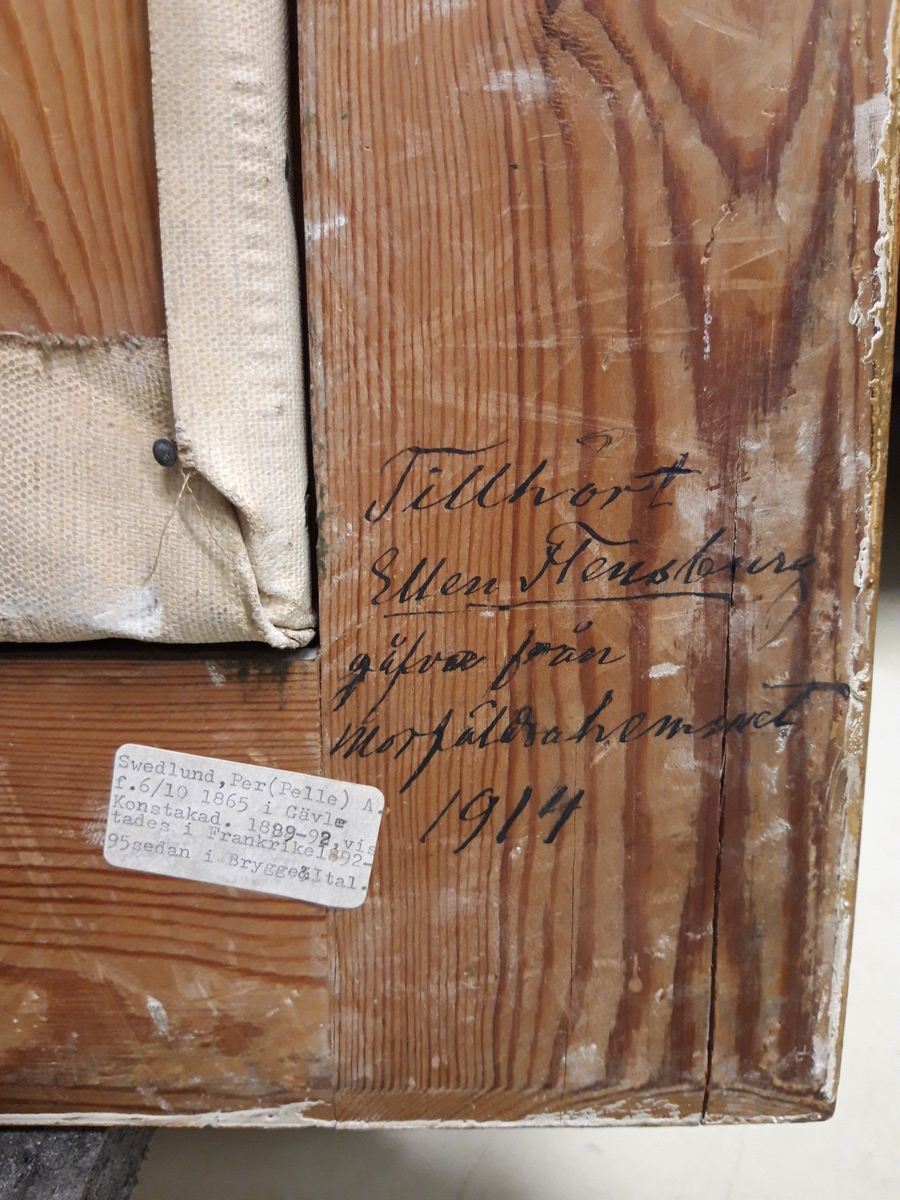 Tillhört
Ellen Flensburg
gåfva från
Morföräldrahemmet
1914
Swedlund,Per(Pelle) A.
f.6/10 1865 i Gävle
Konstakad. 1889-92,vis
tades i Frankrike1892-
95sedan i Brygge&Ital.